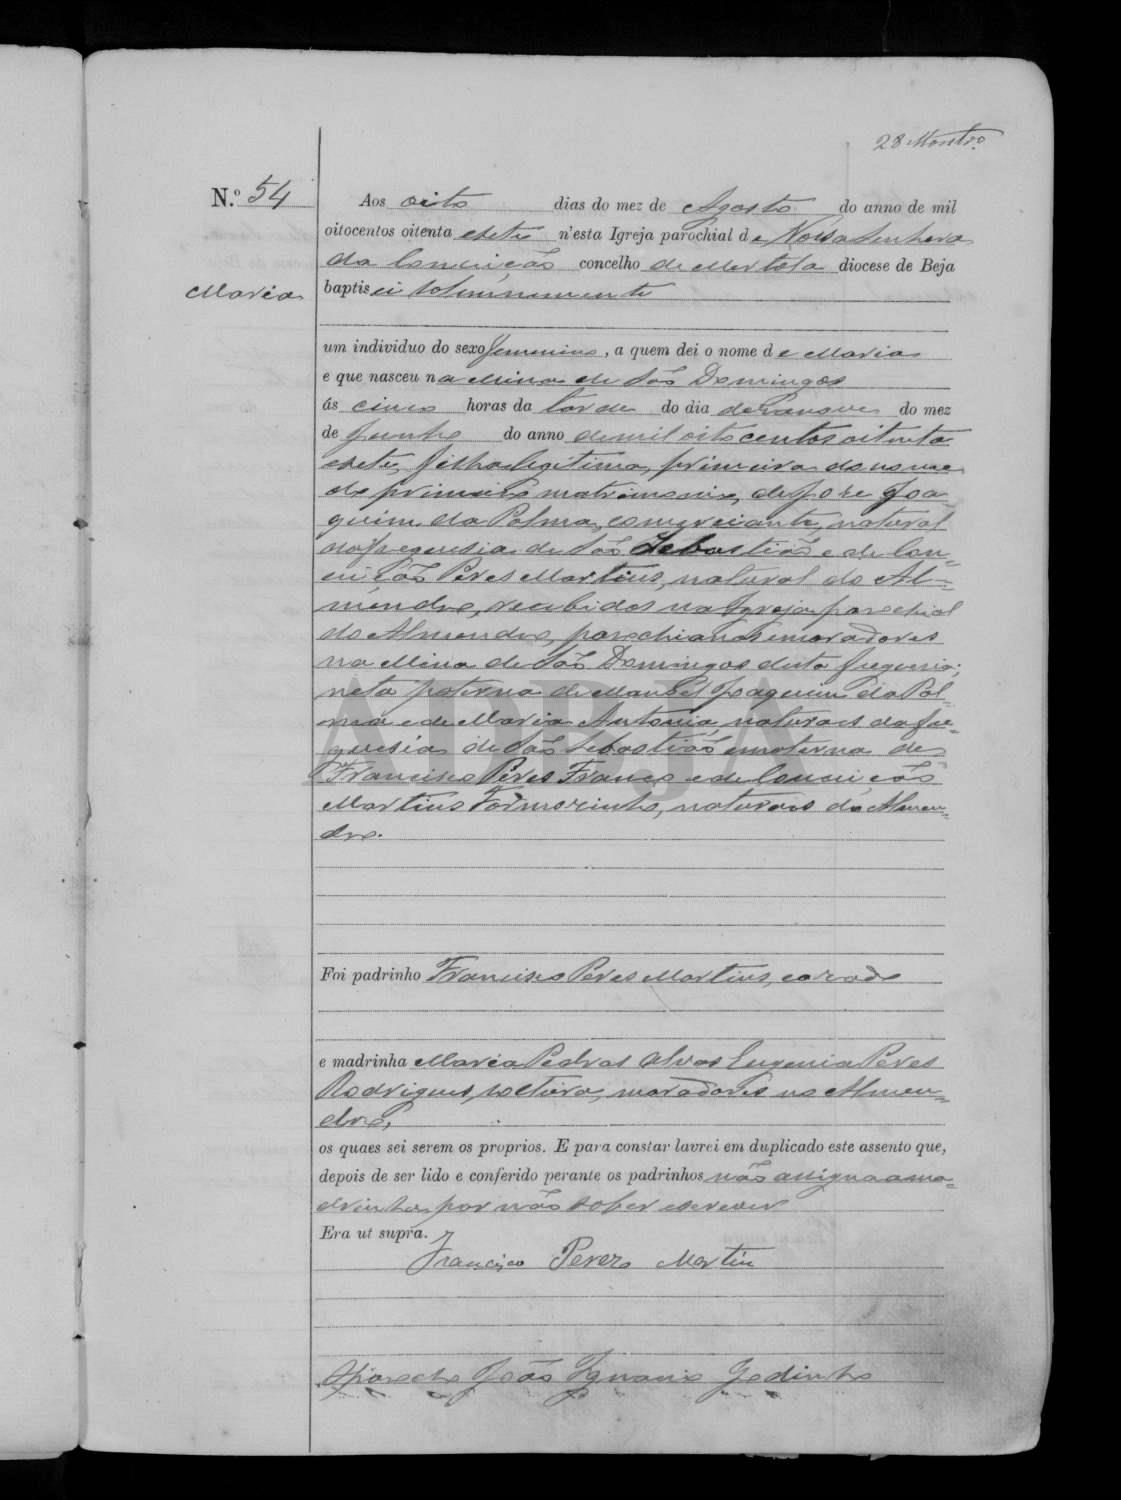 28 Montro
N.º 54
Aos oito dias do mez de Agosto do anno de mil
oitocentos oitenta e sete n'esta Igreja parochial de Nossa Senhora
da Conceição concelho de Mertola diocese de Beja
Maria
baptisei solemnemente
um individuo do sexo femenino, a quem dei o nome de Maria
e que nasceu na Mina de São Domingos
ás cinco horas da tarde do dia do mez
de Junho do anno de mil oito centos oitenta
e sete, filha legitima, primeira do nome
do primeiro matrimonio, de José Joa
quim da Palma, comerciante, natural
da freguesia de São Sebastião e de Con=
ceição Peres Martins, natural do Al=
mendro, recebidos na Igreja parochial
do Almendro, parochianos e moradores
na Mina de São Domingos desta freguesia;
neta paterna de Manoel Joaquim da Pal=
ma e de Maria Antonia, naturaes da fre=
guesia de São Sebastião e materna de
Francisco Peres Franco e de Conceição
Martins naturaes do Almen=
dro.
ADBJA
Foi padrinho Francisco Peres Martins, casado
e madrinha Maria Pedras Alvas Eugenia Peres
Rodrigues, solteira, moradores no Almen=
dro,
os quaes sei serem os proprios. E para constar lavrei em duplicado este assento que,
depois de ser lido e conferido perante os padrinhos não assigna a ma=
drinha por não saber escrever
Era ut supra.
Francisco Perez Martin
O Parocho João Ignacio Godinho